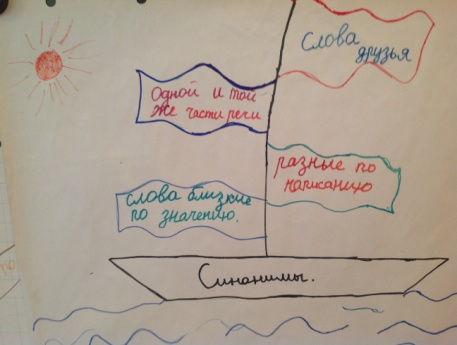 Слова
друзья
Одной и той
же части речи
разные по
написанию
слова близкие
по значению.
Синонимы.